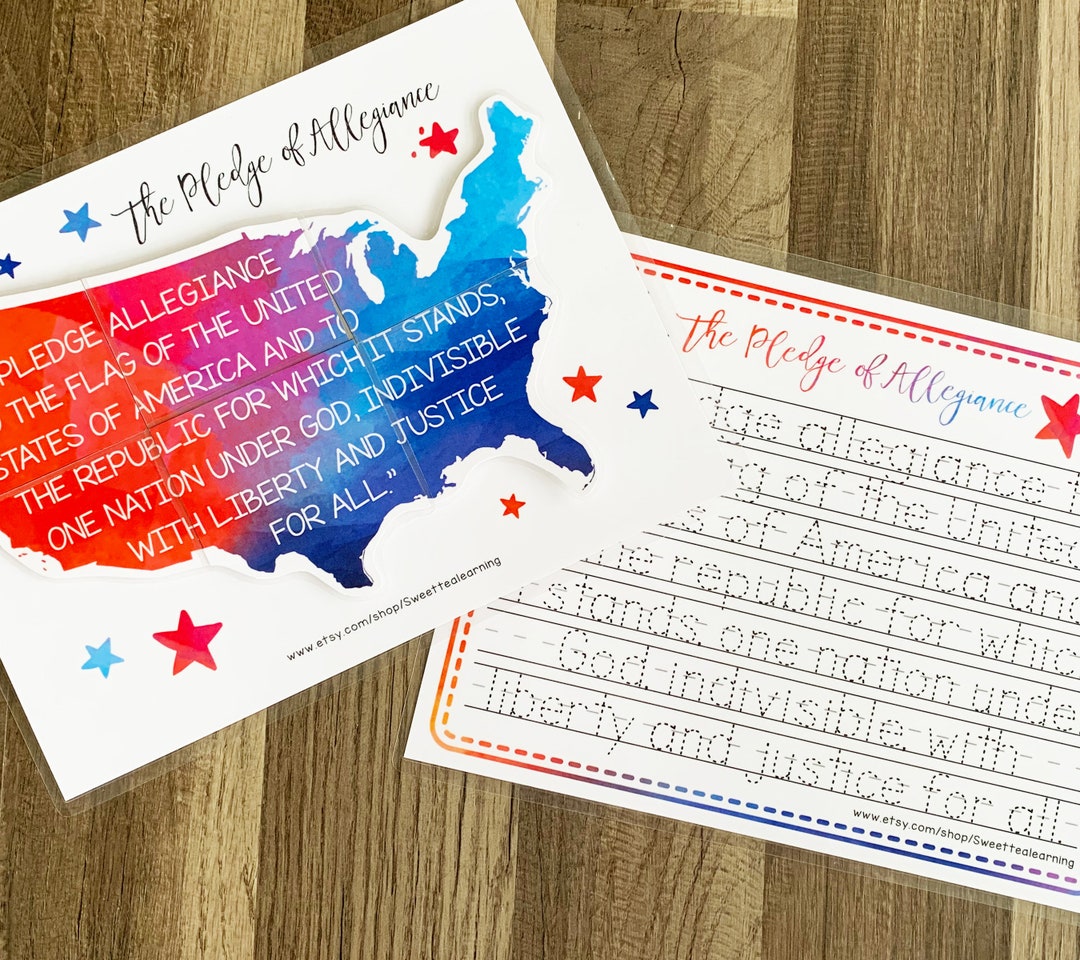 the Pledge of Allegiance
PLEDGE ALLEGIANCE
THE FLAG OF THE UNITED
STATES OF AMERICA AND TO
THE REPUBLIC FOR WHICH IT STANDS,
ONE NATION UNDER GOD, INDIVISIBLE
WITH LIBERTY AND JUSTICE
FOR ALL."
www.etsy.com/shop/Sweettealearning
the Pledge of Allegiance
allegiance
of the United
of America and
republic for which
stands one nation under
God indivisible with
liberty and justice for all.
www.etsy.com/shop/Sweettealearning